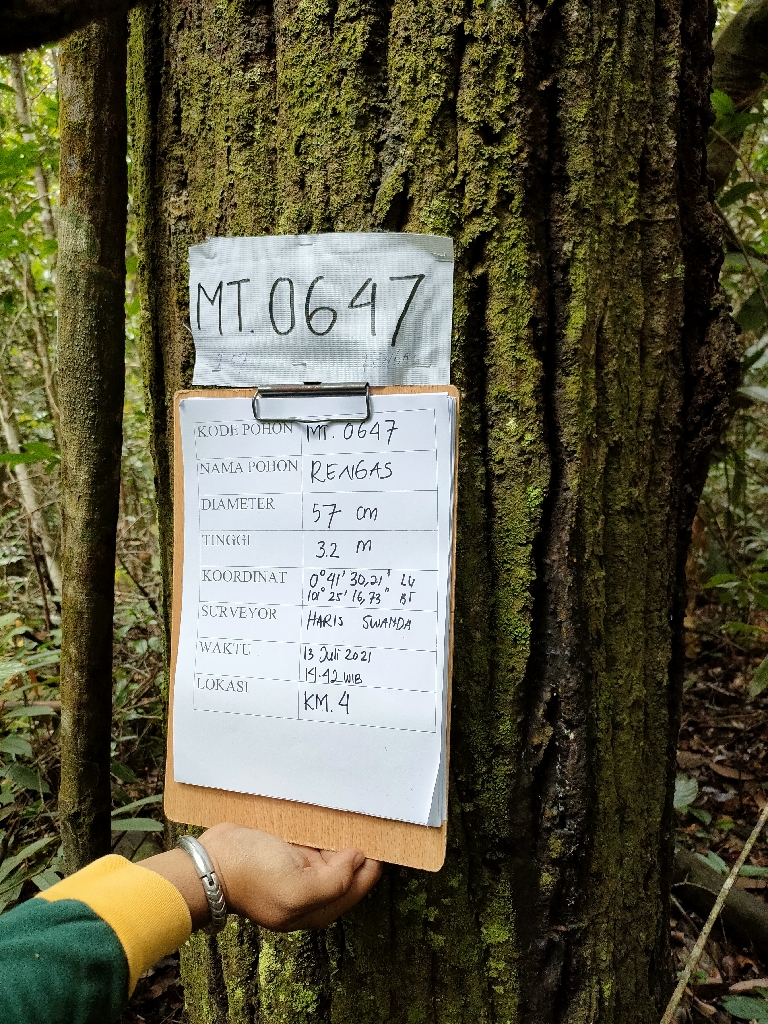 MT. 0647
KODE POHON MT. 0647
NAMA POHON RENGAS
DIAMETER 57 cm
TINGGI 32 m
KOORDINAT 0°41'30,21" LU
101°25'16,73" BT
SURVEYOR HARIS SWANDA
WAKTU 13 Juli 2021
14.42 WIB
LOKASI KM. 4